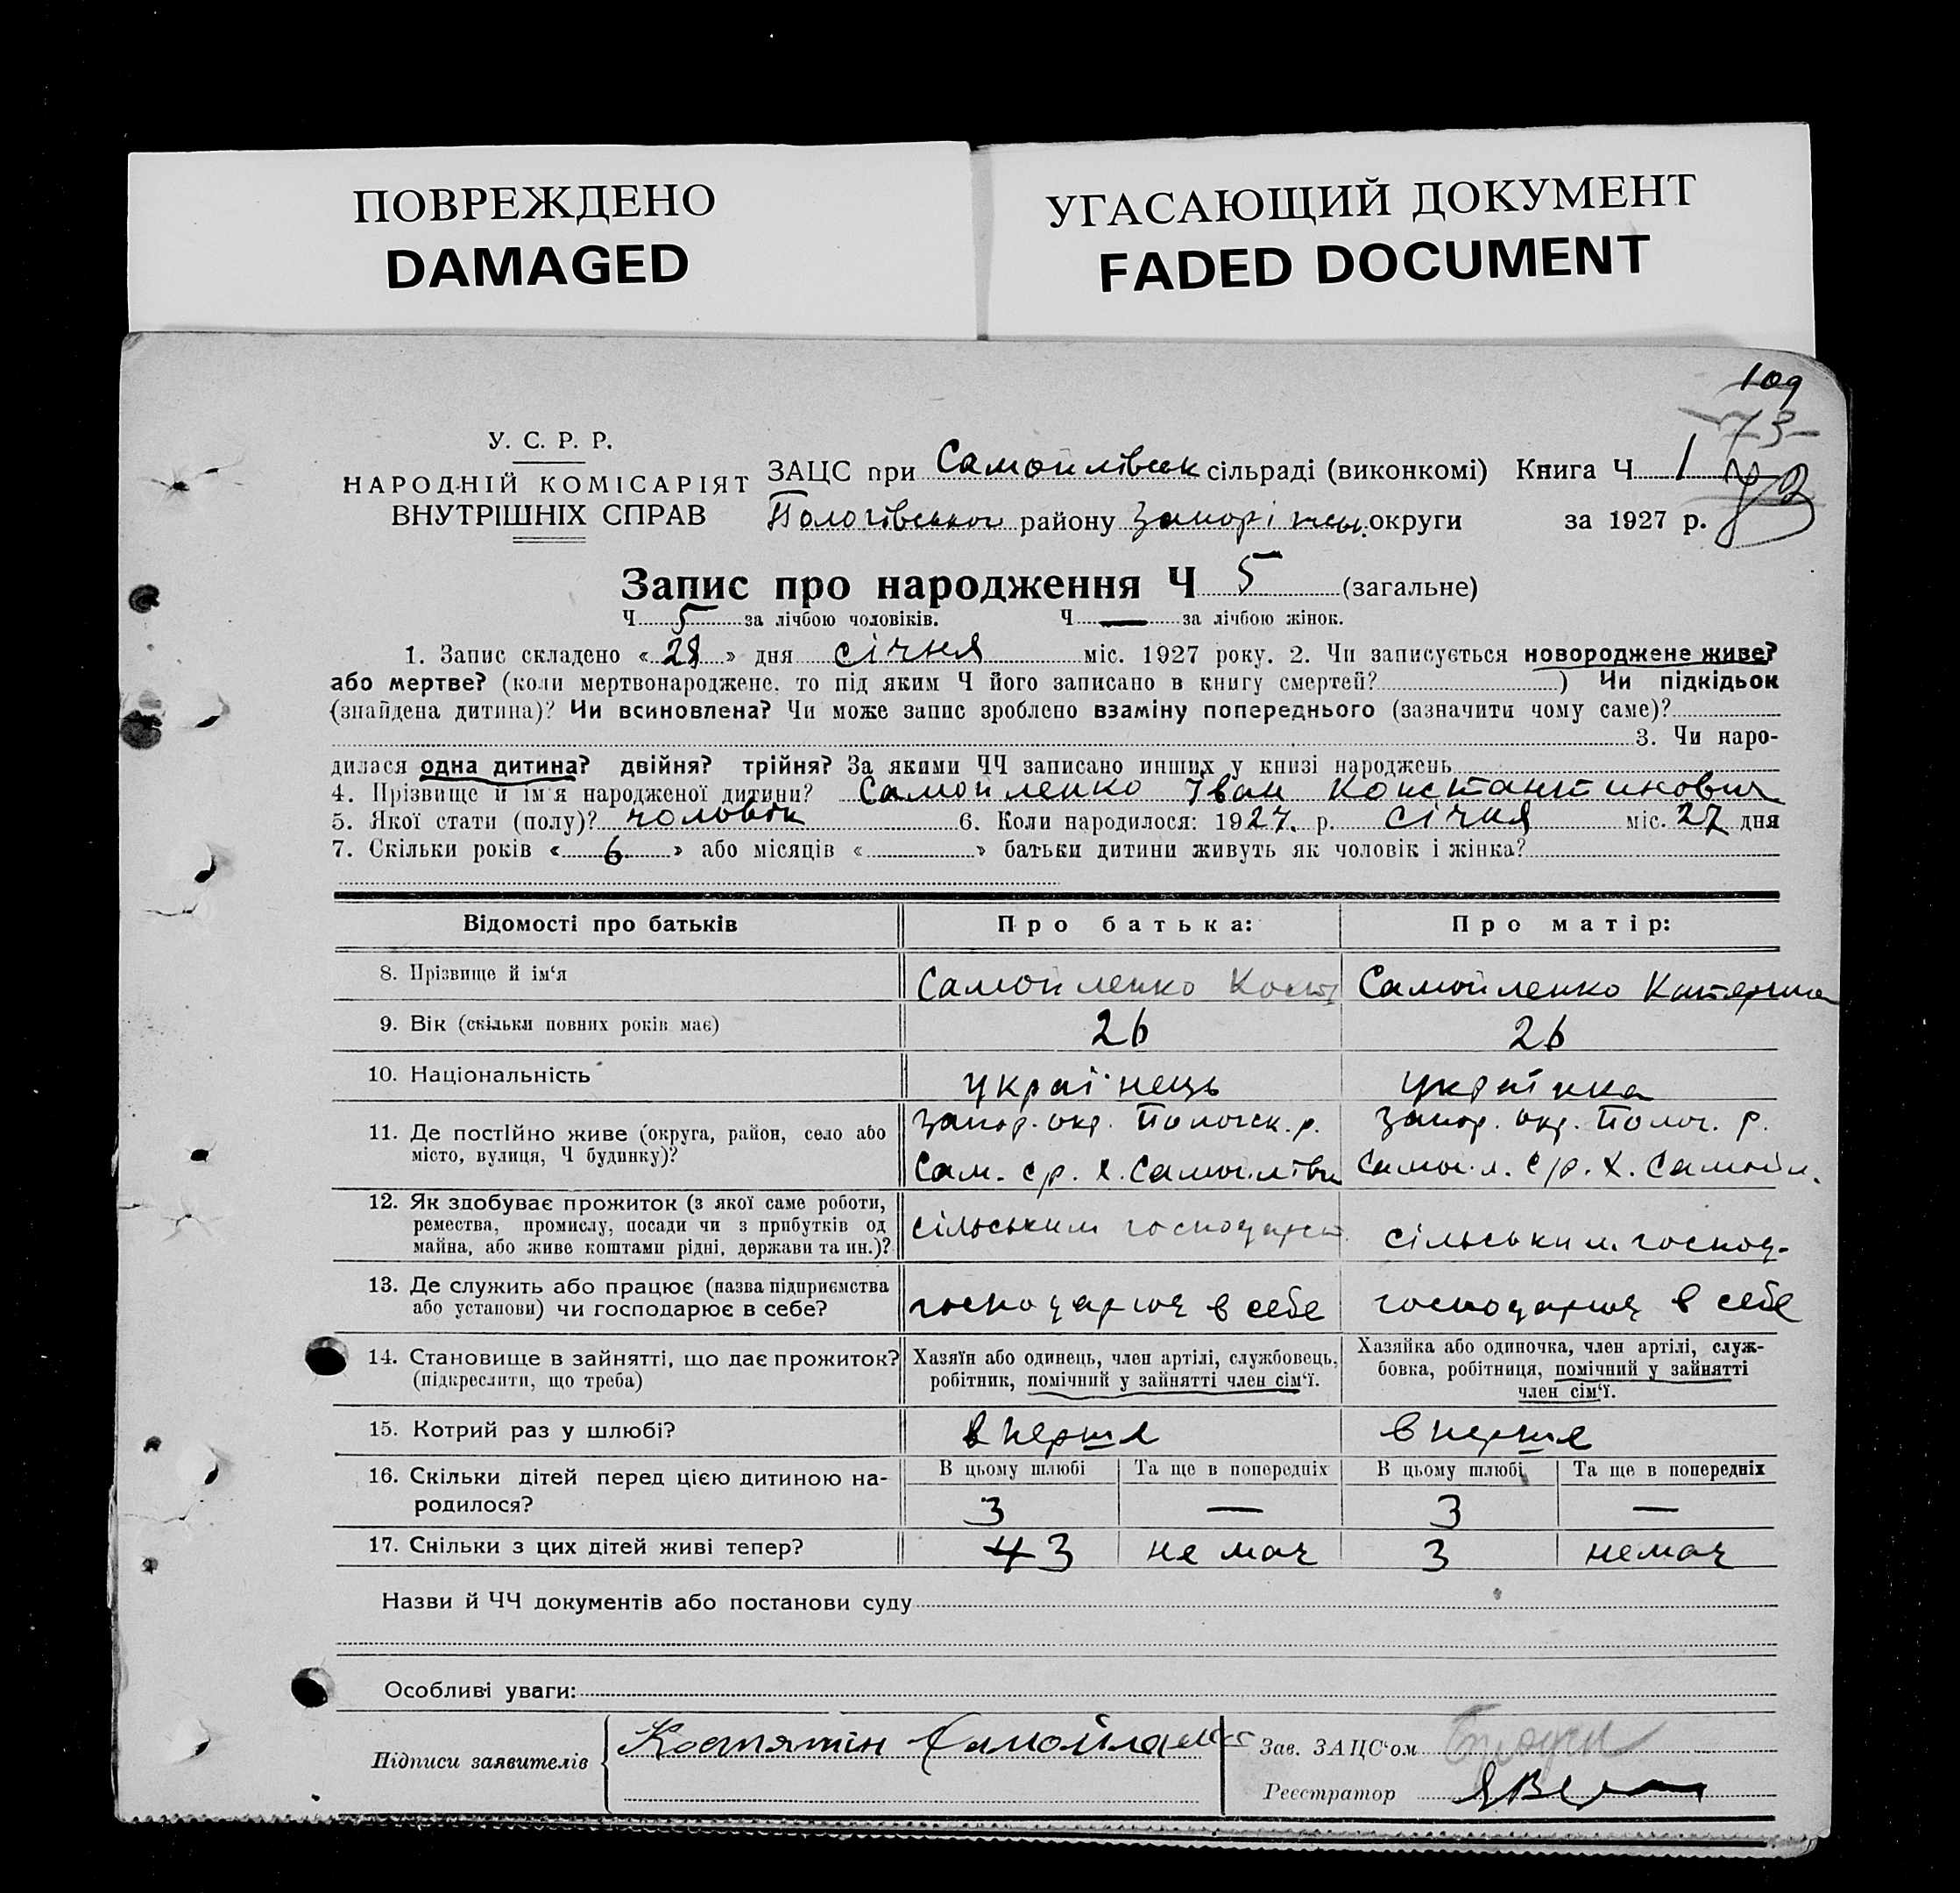 ПОВРЕЖДЕНО
DAMAGED
УГАСАЮЩИЙ ДОКУМЕНТ
FADED DOCUMENT
109
73
У. С. Р. Р.
НАРОДНІЙ КОМІСАРІЯТ
ВНУТРІШНІХ СПРАВ
ЗАЦС при Самойлівськ сільраді (виконкомі) Книга Ч 1
Пологівського району Запоріжськ. округи за 1927 р.
Запис про народження Ч 5 (загальне)
Ч 5 за лічбою чоловіків. Ч — за лічбою жінок.
1. Запис складено «28» дня січня міс. 1927 року. 2. Чи записується новороджене живе?
або мертве? (коли мертвонароджене, то під яким Ч його записано в книгу смертей? ) Чи підкідьок
(знайдена дитина)? Чи всиновлена? Чи може запис зроблено взаміну попереднього (зазначити чому саме)?
3. Чи наро-
дилася одна дитина? двійня? трійня? За якими ЧЧ записано инших у книзі народжень
4. Прізвище й ім'я народженої дитини? Самойленко Іван Константинович
5. Якої стати (полу)? чоловік 6. Коли народилося: 1927. р. січня міс. 27 дня
7. Скільки років «6» або місяців « » батьки дитини живуть як чоловік і жінка?
Відомості про батьків Про батька: Про матір:
8. Прізвище й ім'я Самойленко Кост Самойленко Катерина
9. Вік (скільки повних років має) 26 26
10. Національність українець українка
11. Де постійно живе (округа, район, село або місто, вулиця, Ч будинку)?
Запор. окр. Пологск. р.
Сам. с/р. х. Самойлівк
Запор. окр. Полог. р.
Самойл. с/р. х. Самойл.
12. Як здобуває прожиток (з якої саме роботи,
ремества, промислу, посади чи з прибутків од
майна, або живе коштами рідні, держави та ин.)?
сільським господарст. сільським. господ.
13. Де служить або працює (назва підприємства
або установи) чи господарює в себе?
господарює в себе господарює в себе
14. Становище в зайнятті, що дає прожиток?
(підкреслити, що треба)
Хазяїн або одинець, член артілі, службовець,
робітник, помічний у зайнятті член сім'ї.
Хазяйка або одиночка, член артілі, служ-
бовка, робітниця, помічний у зайнятті
член сім'ї.
15. Котрий раз у шлюбі? вперше вперше
16. Скільки дітей перед цією дитиною на-
родилося?
В цьому шлюбі Та ще в попередніх В цьому шлюбі Та ще в попередніх
3 — 3 —
17. Скільки з цих дітей живі тепер? 4 3 не має 3 немає
Назви й ЧЧ документів або постанови суду
Особливі уваги:
Підписи заявителів Костянтін Самойленко
Зав. ЗАЦС'ом
Реєстратор